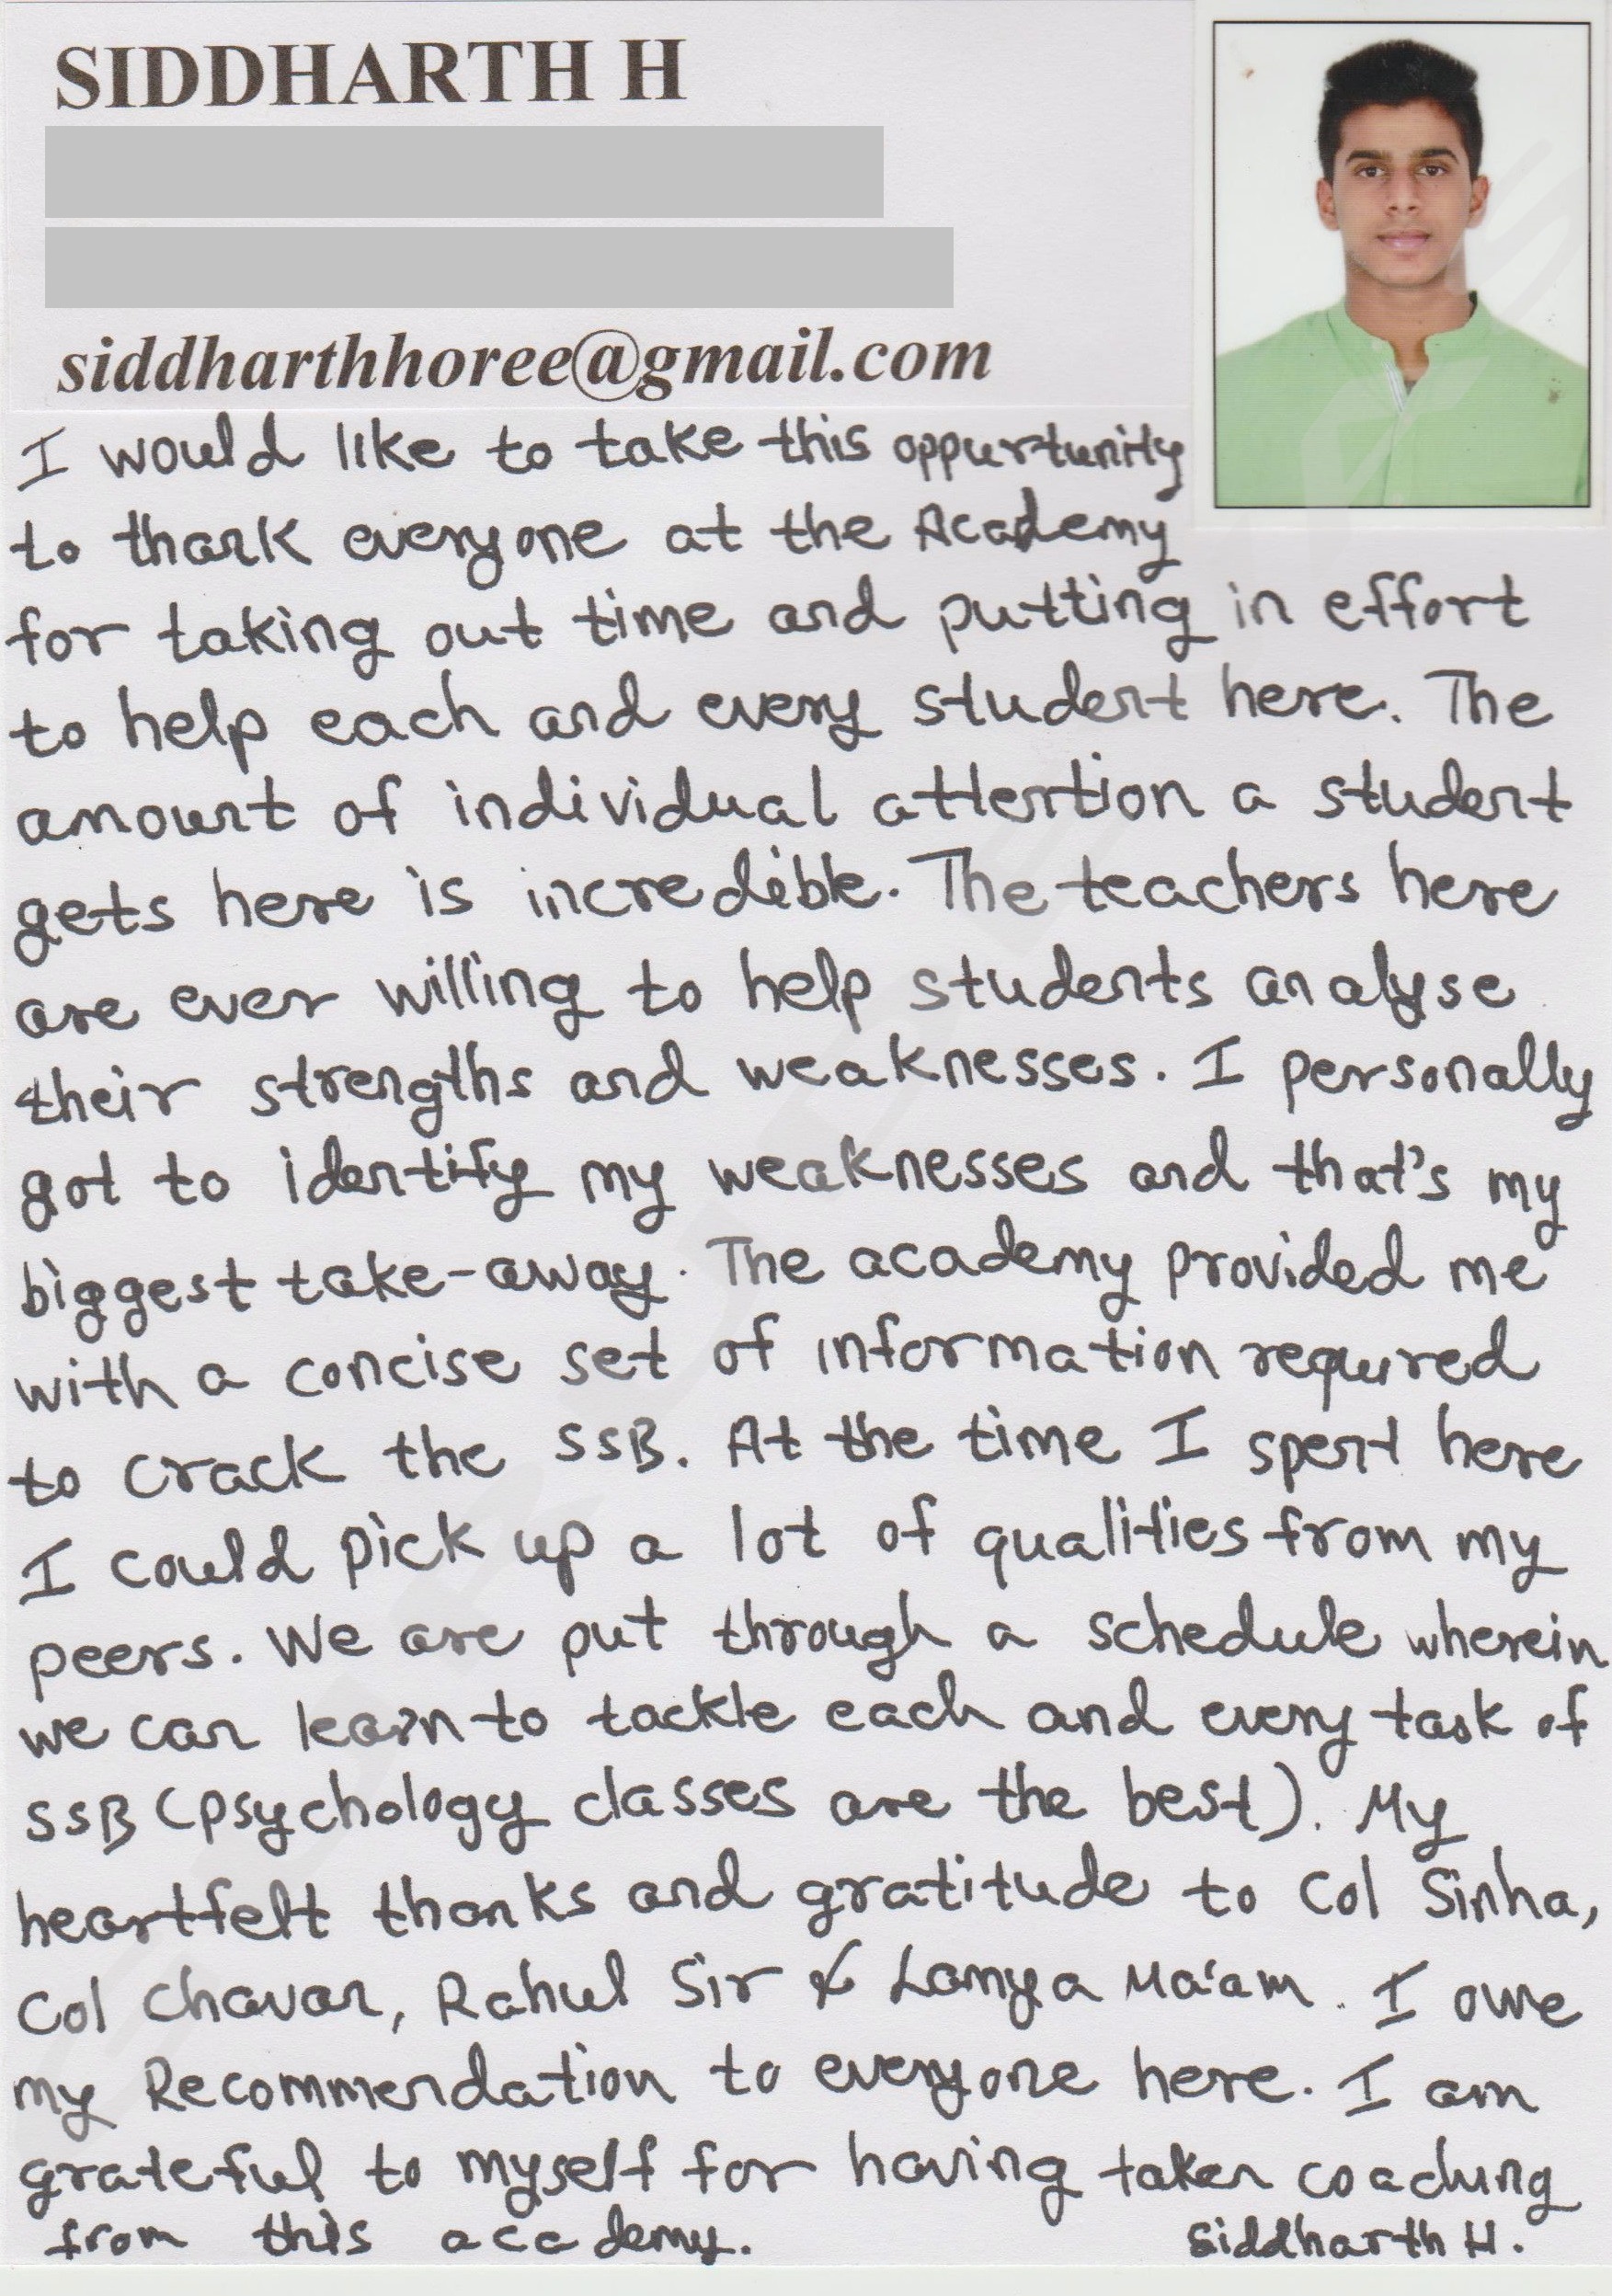 SIDDHARTH H
siddharthhoree@gmail.com
I would like to take this oppurtunity
to thank everyone at the Academy
for taking out time and putting in effort
to help each and every student here. The
amount of individual attention a student
gets here is incredible. The teachers here
are ever willing to help students analyse
their strengths and weaknesses. I personally
got to identify my weaknesses and that's my
biggest take-away. The academy provided me
with a concise set of information required
to crack the SSB. At the time I spent here
I could pick up a lot of qualities from my
peers. We are put through a schedule wherein
we can learn to tackle each and every task of
SSB (psychology classes are the best). My
heartfelt thanks and gratitude to Col Sinha,
Col Chavan, Rahul Sir & Lamya Ma'am. I owe
my Recommendation to everyone here. I am
grateful to myself for having taken coaching
from this academy. Siddharth H.